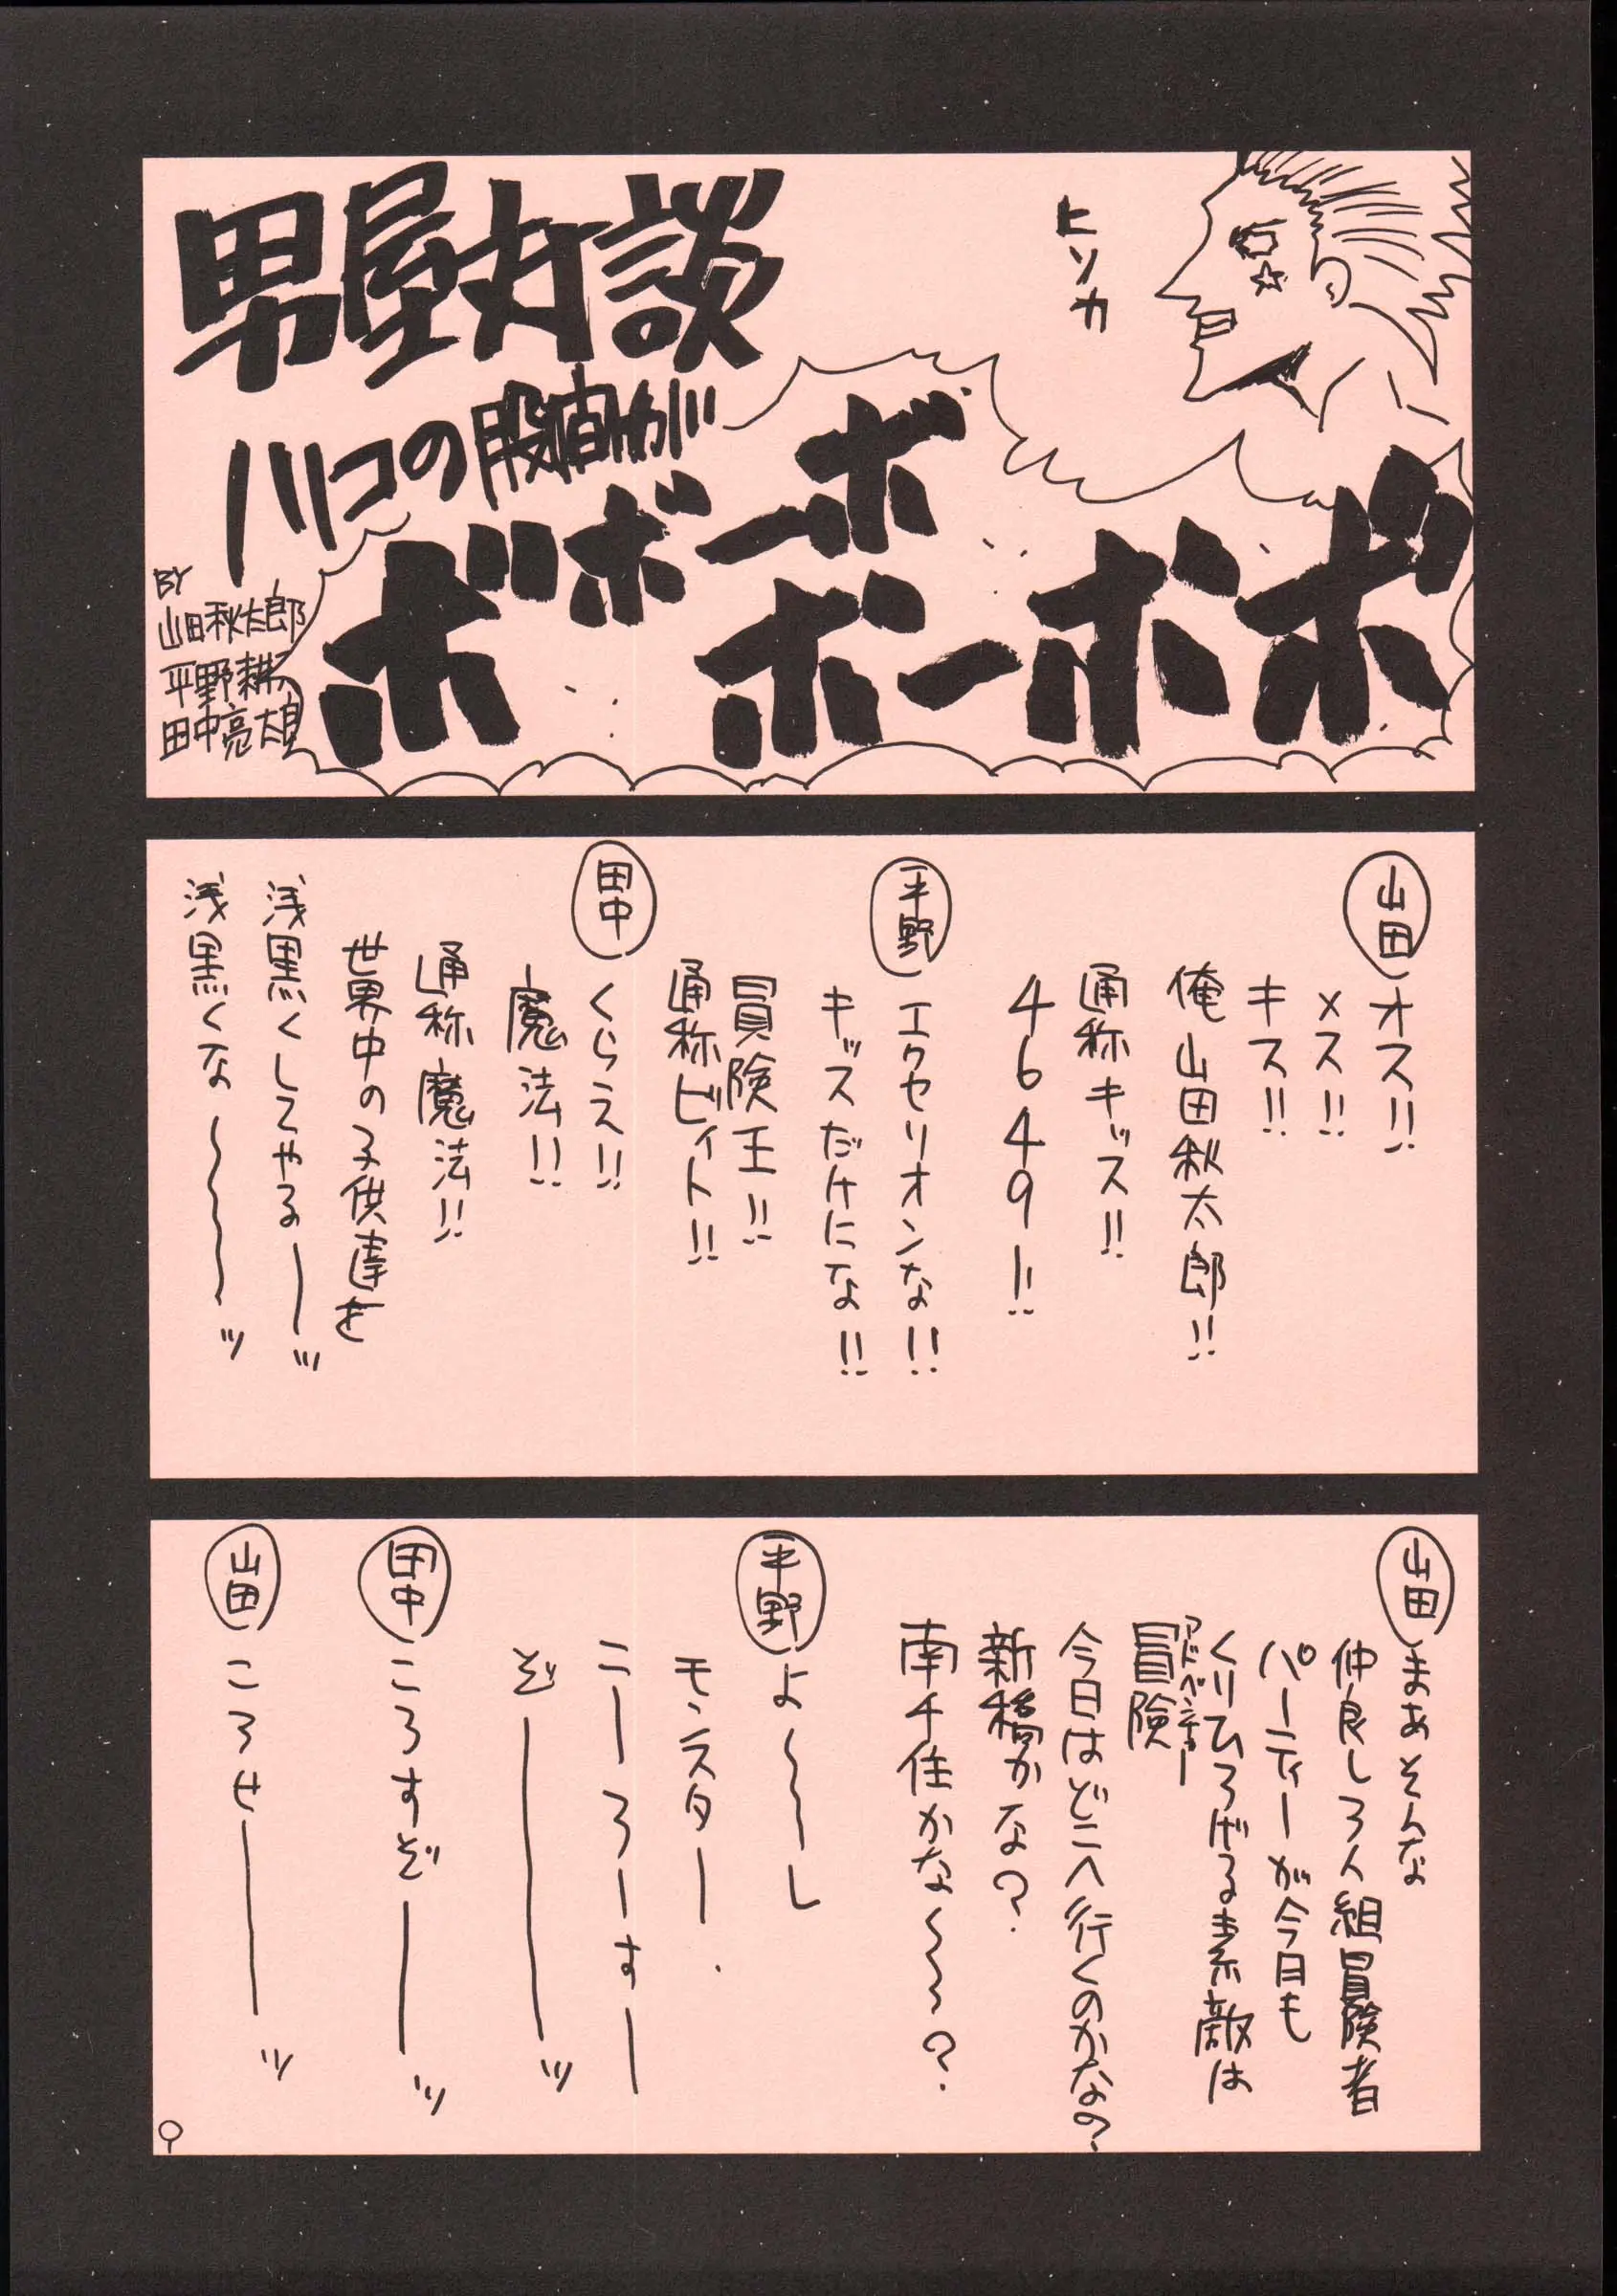 男屋対談
ハルコの股間が
ボボボーボ
ボーボボ
ヒソカ
BY
山田秋太郎
平野耕太
田中亮太
山田
オス!!
メス!!
キス!!
俺山田秋太郎!!
通称キッス!!
4649ー!!
平野
エクセリオンな!!
キッスだけにな!!
冒険王!!
通称ビィト!!
田中
くらえ!!
魔法!!
通称魔法!!
世界中の子供達を
浅黒くしてやるーーッ
浅黒くな〜〜〜ッ
山田
まあそんな
仲良し3人組冒険者
パーティーが今日も
くりひろげる素敵は
冒険
アドベンチャー
今日はどこへ行くのかな?
新橋かな?
南千住かな〜〜?
平野
よ〜〜し
モンスター
こーろーすー
ぞーーーッ
田中
ころすぞーーッ
山田
ころせーーーッ